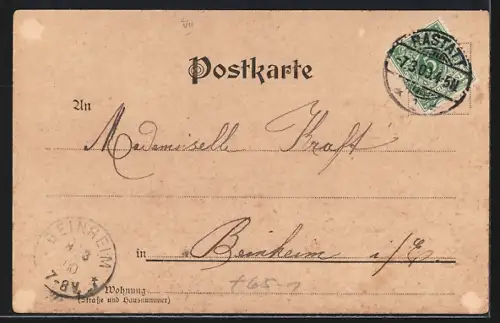 VII
Postkarte
RASTATT
7.3.00.4-5N.
An
Mademoiselle Kraft
BEINHEIM
8 3
00
7-8V.
in Beinheim i/E.
Wohnung
(Straße und Hausnummer)
+65-1